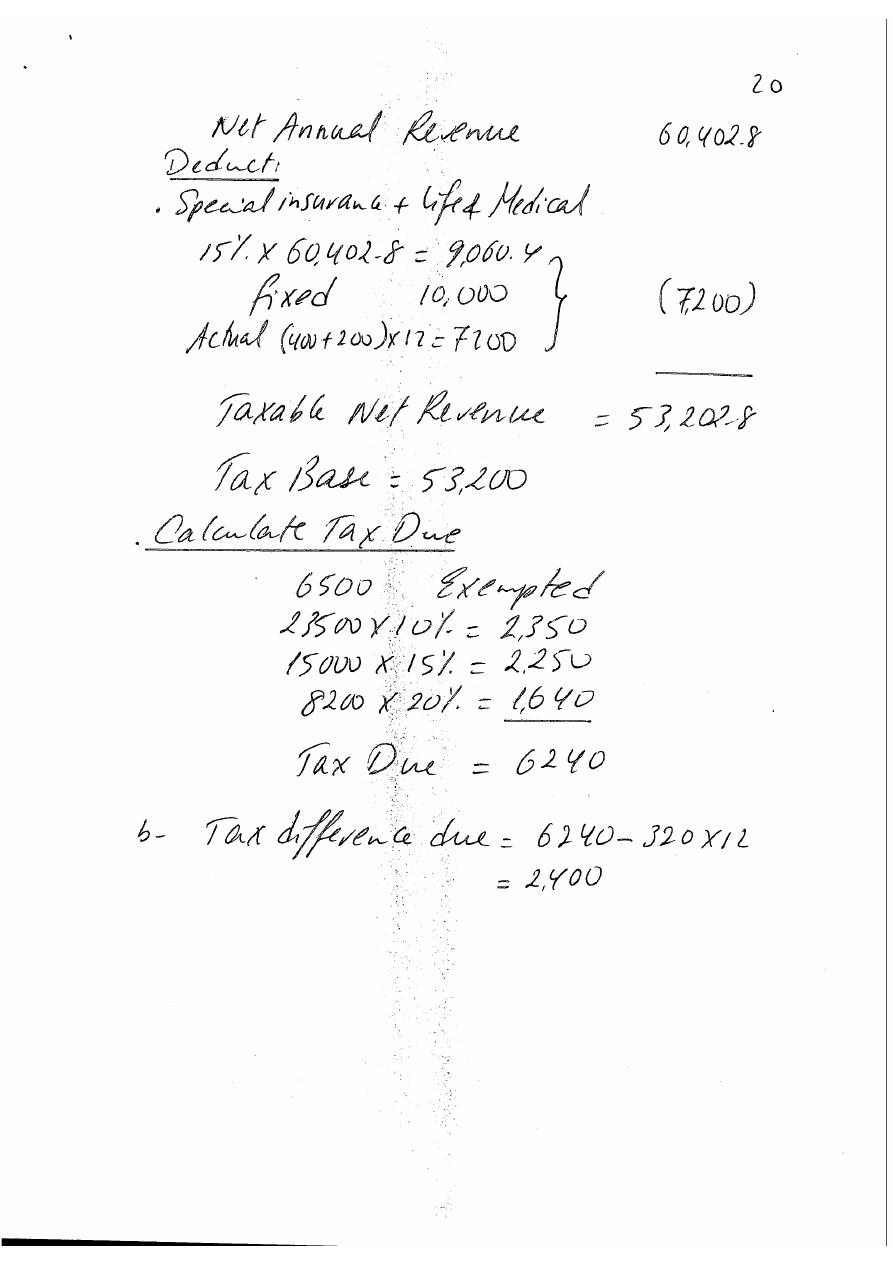 20
Net Annual Revenue 60,402.8
Deduct:
. Special insurance + Life & Medical
15% X 60,402.8 = 9,060.4
fixed 10,000 (7,200)
Actual (400+200)X12 = 7200
Taxable Net Revenue = 53,202.8
Tax Base = 53,200
. Calculate Tax Due
6500 Exempted
23500 X 10% = 2,350
15000 X 15% = 2,250
8200 X 20% = 1,640
Tax Due = 6240
b- Tax difference due = 6240 - 320 X 12
= 2,400